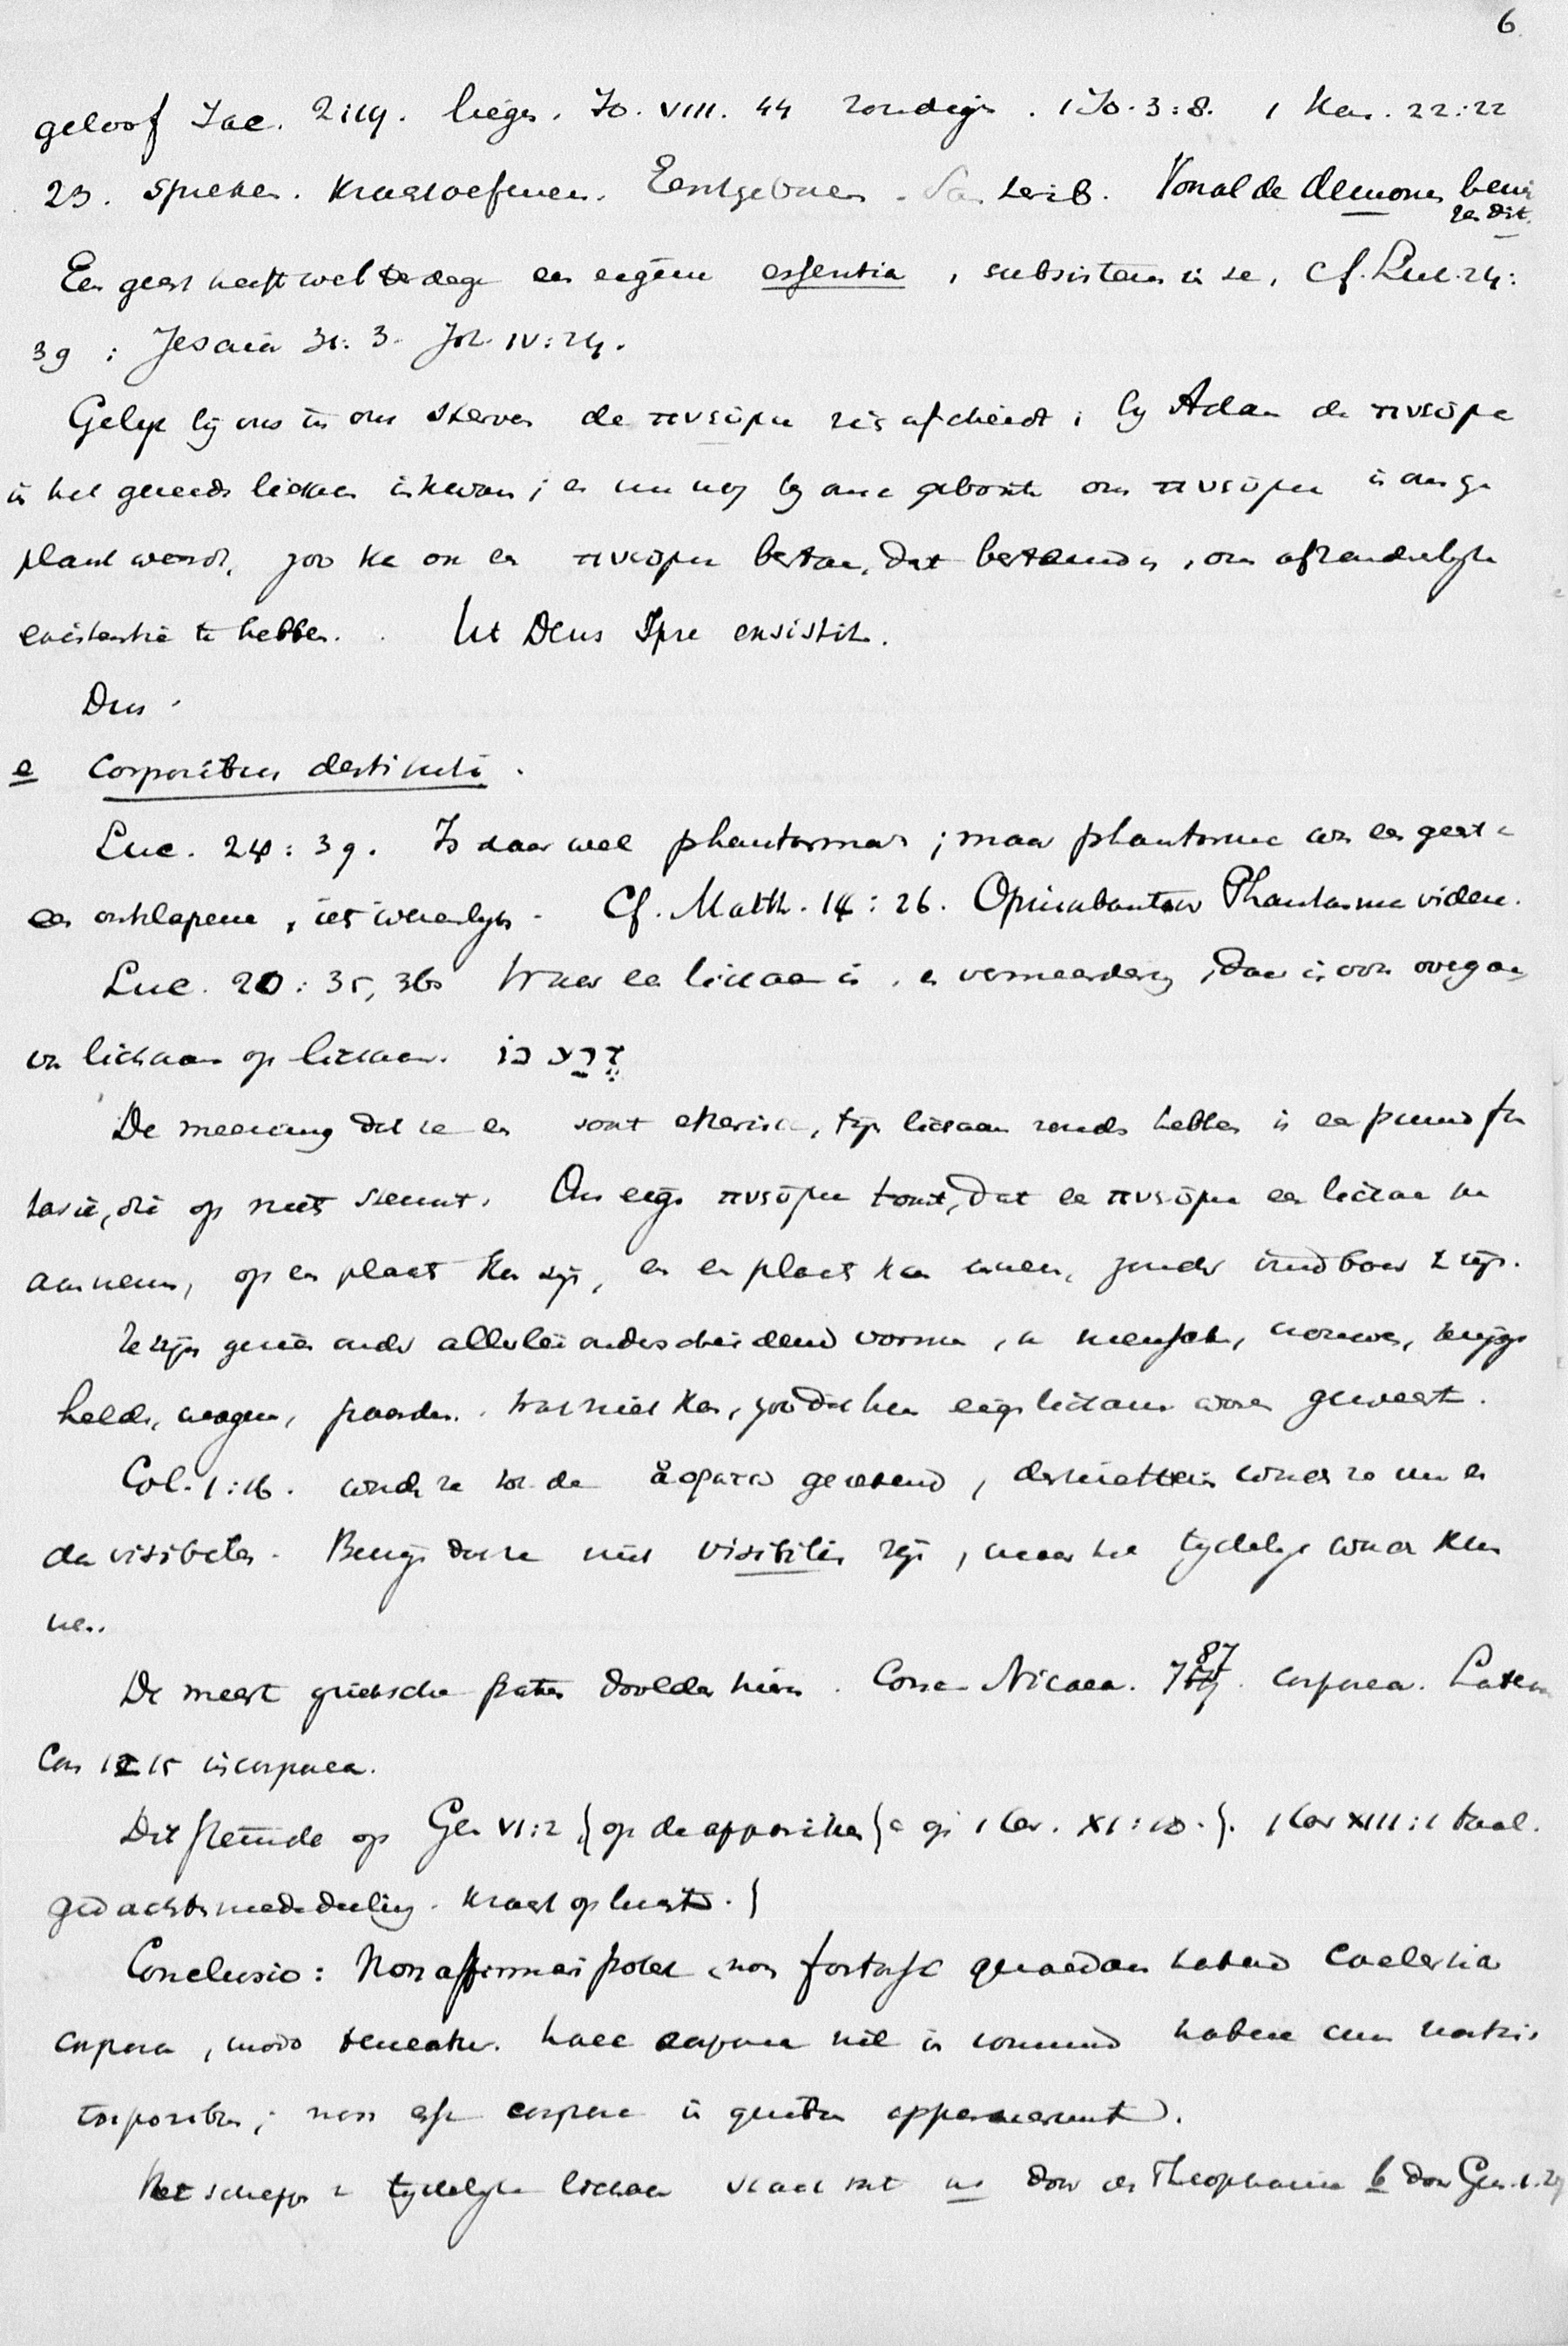 6
geloof Jac. 2:19. liegen. Jo. VIII. 44 zondigen. 1 Jo. 3:8. 1 Kon. 22:22
23. spreken. Kracht oefenen. Vooral de demonen bewij
zen dit.
Een geest heeft wel te dege een eigene essentia, subsistens in se, cf. Luc. 24:
39; Jesaia 31:3. Joh. IV:24.
Gelijk bij ons in ons sterven de πνεῦμα zich afscheidt; bij Adam de πνεῦμα
in het gereede lichaam inkwam; en nu nog bij onze geboorte ons πνεῦμα in ons ge
plant wordt, zoo kan ook een πνεῦμα bestaan, dat bestemd is, om afzonderlijke
existentie te hebben. Ut Deus Ipse existit.
Dus
e corporibus destituti.
Luc. 24:39. Is daar wel phantasma; maar phantasma was een geest v
een ontslapene, iets wezenlijks. Cf. Matth. 14:26. Opinabantur Phantasma videre.
Luc. 20:35, 36 Waar een lichaam is, is vermeerdering, daar is ook overgang
van lichaam op lichaam.
De meening dat ze een soort etherisch, fijn lichaam zouden hebben is een puure fan
tasie, die op niets steunt. Ons eigen πνεῦμα toont, dat een πνεῦμα een lichaam kan
aannemen, op een plaats kan zijn, en een plaats kan innemen, zonder rondbaar te zijn.
Ze zijn gezien onder allerlei onderscheidene vormen, als menschen, vrouwen, krijgs
helden, wagens, paarden. Wat niet kon, zoo dit hun eigen lichaam ware geweest.
Col. 1:16. worden ze tot de ἀόρατα gerekend, desniettemin waren ze nu en
dan visibeles. Bewijs dat ze niet visibiles zijn, maar het tijdelijk worden kun
nen.
De meest grieksche patres doolden hierin. Conc. Nicaea. 787. corporea. Lateran
Con 1215 incorporea.
Dit steunde op Gen VI:2 {op de apparities} en op 1 Cor. XI:10.}. 1 Cor XIII:1 taal.
gedachtemededeeling. Kracht op lucht.}
Conclusio: Non affirmari potest non fortasse quaedam habeant caelestia
corpora, modo teneatur haec corpora nil in commune habere cum nostris
corporibus; non esse corpora in quibus apparuerunt.
Het scheppen v tijdelijke lichaam staat vast a door de Theophanie b door Gen. 1.29